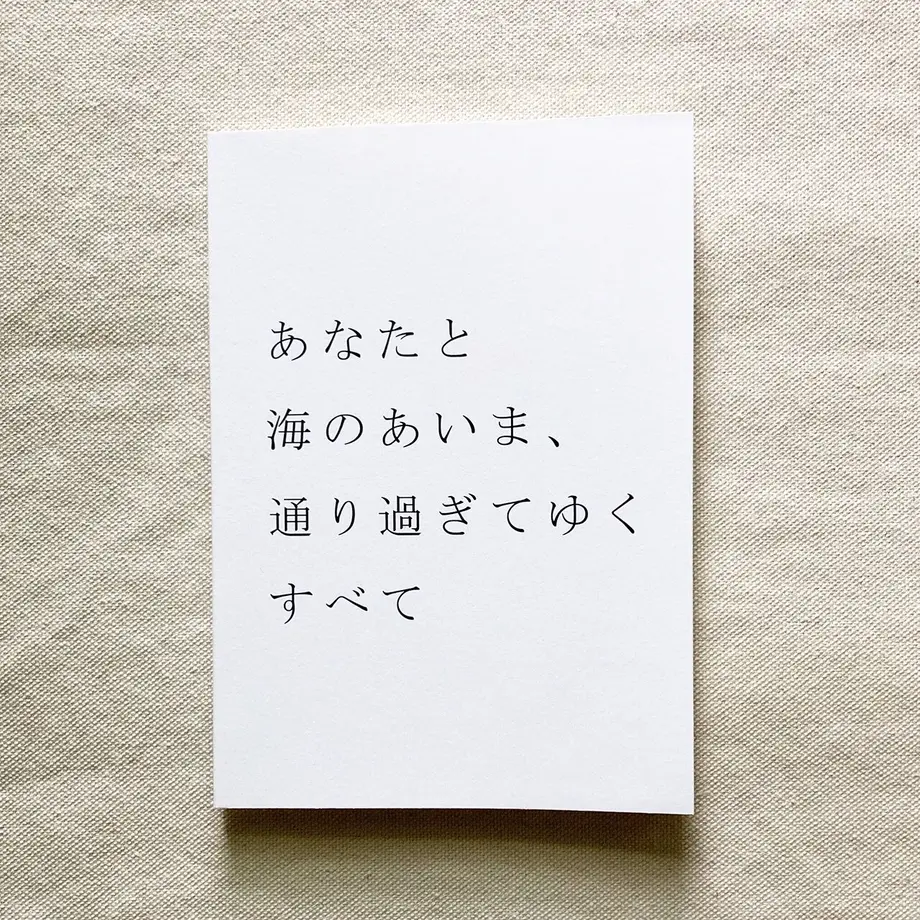 あなたと
海のあいま、
通り過ぎてゆく
すべて